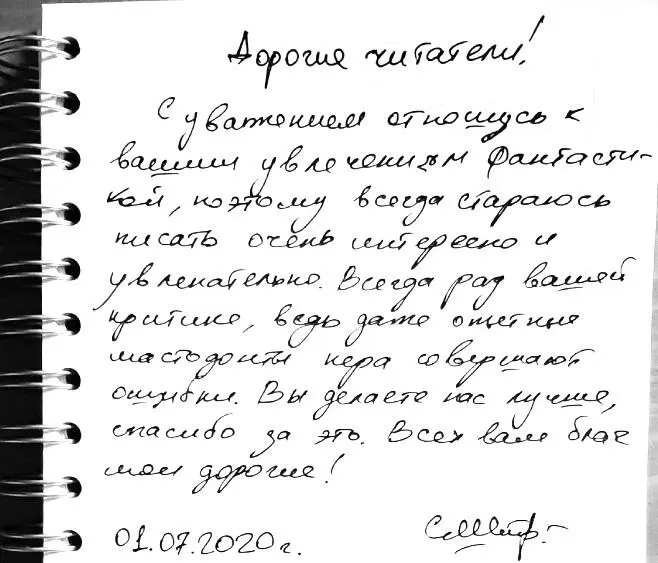 Дорогие читатели!
С уважением отношусь к
вашим увлечениям фантасти-
кой, поэтому всегда стараюсь
писать очень интересно и
увлекательно. Всегда рад вашей
критике, ведь даже опытные
мастодонты пера совершают
ошибки. Вы делаете нас лучше,
спасибо за это. Всех вам благ
мои дорогие!
01.07.2020 г.